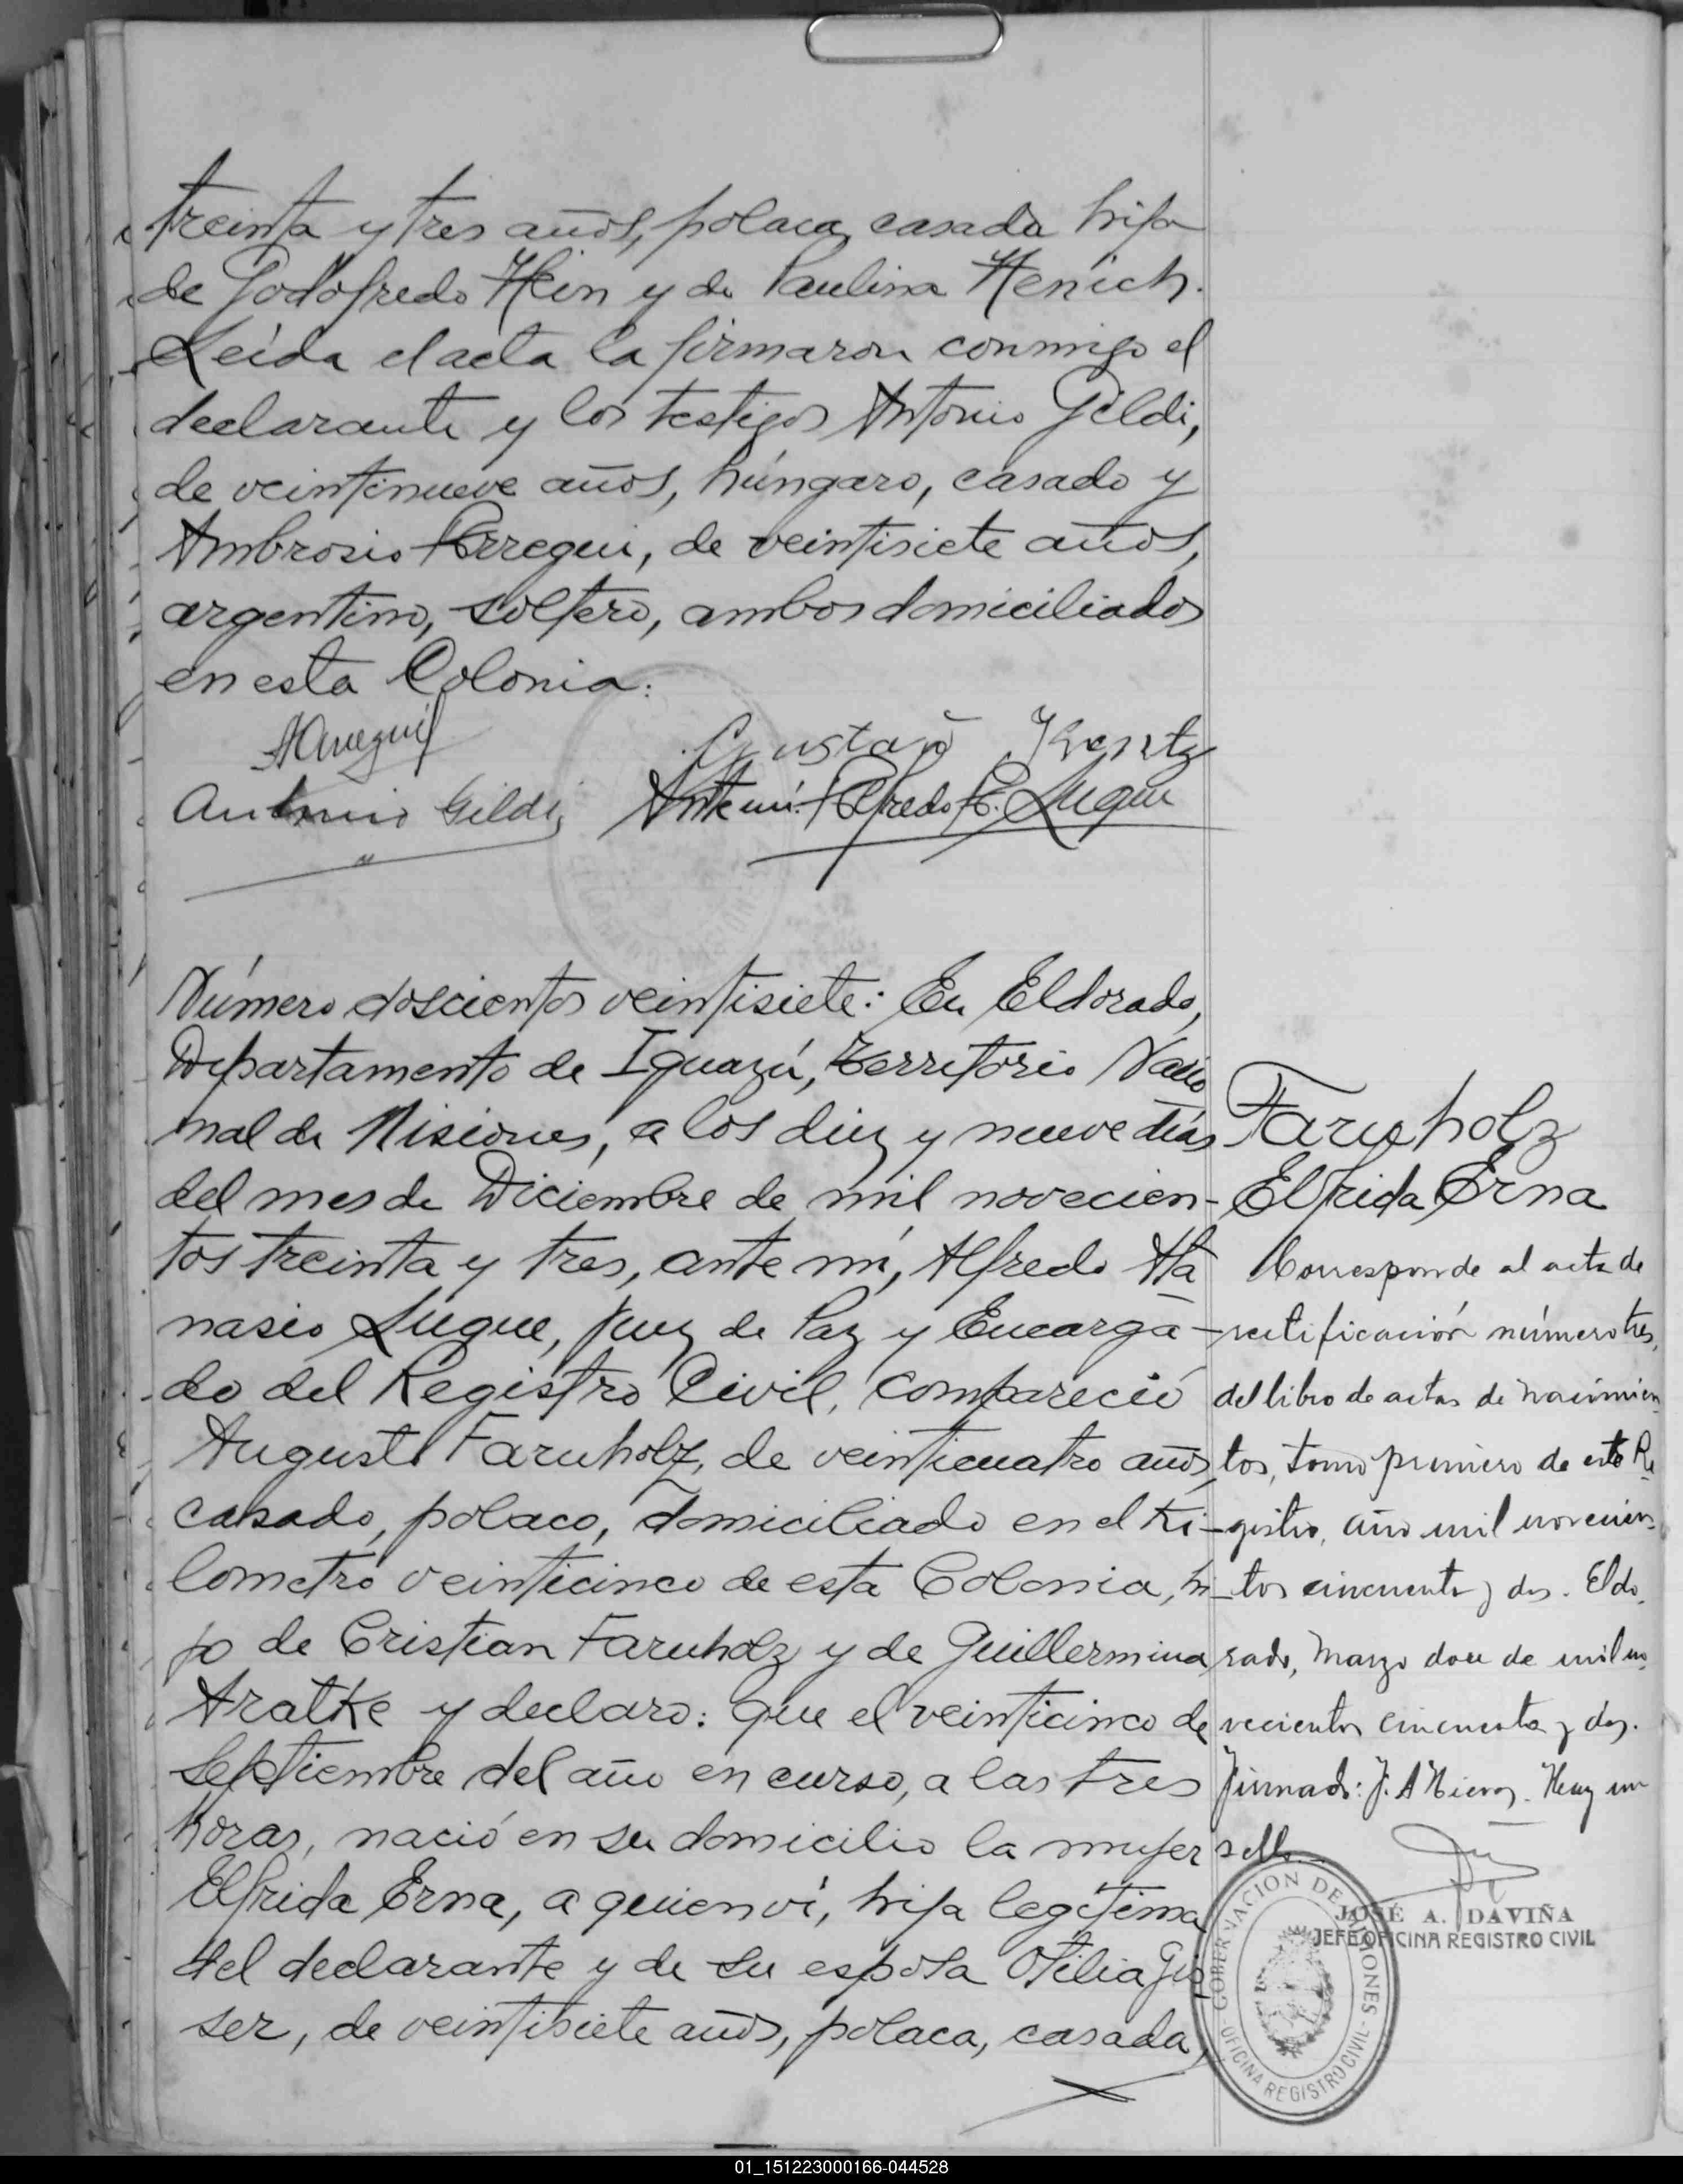 treinta y tres años, polaca, casada hija
de Godofredo Hein y de Paulina Henich.
Leída el acta la firmaron conmigo el
declarante y los testigos Antonio Gildi,
de veintinueve años, húngaro, casado y
Ambrosio Arregui, de veintisiete años,
argentino, soltero, ambos domiciliados
en esta Colonia.
AArregui
Gustav
Antonio Gildi
Ante mí: Alfredo A. Luque
Número doscientos veintisiete: En Eldorado,
Departamento de Iguazú, Territorio Nacio
nal de Misiones, a los diez y nueve días
del mes de Diciembre de mil novecien-
tos treinta y tres, ante mí, Alfredo Ata
nasio Luque, Juez de Paz y Encarga-
do del Registro Civil, compareció
August Faruholz, de veinticuatro años,
casado, polaco, domiciliado en el Ki-
lometro veinticinco de esta Colonia, hi-
jo de Cristian Faruholz y de Guillermina
Aratke y declaro: Que el veinticinco de
Septiembre del año en curso, a las tres
horas, nació en su domicilio la mujer
Elfrida Erna, a quien vi, hija legítima
del declarante y de su esposa Otilia Gis
ser, de veintisiete años, polaca, casada,
Faruholz
Elfrida Erna
Corresponde al acta de
rectificación número tres,
del libro de actas de nacimien
tos, tomo primero de este Re
gistro, año mil novecien-
tos cincuenta y dos. Eldo
rado, Marzo doce de mil no
vecientos cincuenta y dos.
Firmado: J. A Nieves. Hay un
sello.
JOSÉ A. DAVIÑA
JEFE OFICINA REGISTRO CIVIL
GOBERNACION DE MISIONES
- OFICINA REGISTRO CIVIL -
01_151223000166-044528